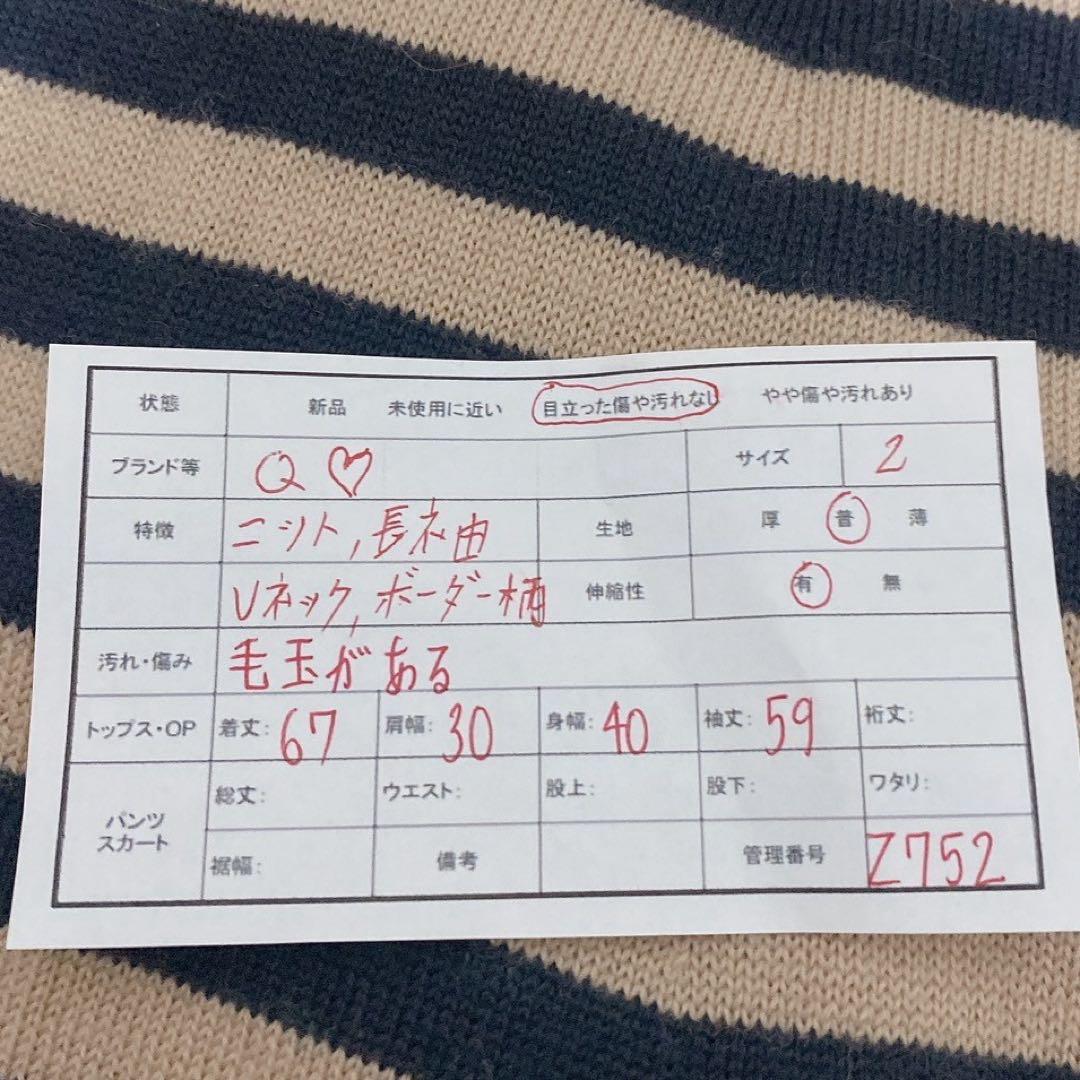 状態 新品 未使用に近い 目立った傷や汚れなし やや傷や汚れあり
ブランド等 Q♡ サイズ 2
特徴 ニット,長袖 生地 厚 普 薄
Vネック,ボーダー柄 伸縮性 有 無
汚れ・傷み 毛玉がある
トップス・OP 着丈:67 肩幅:30 身幅:40 袖丈:59 裄丈:
パンツ
スカート
総丈: ウエスト: 股上: 股下: ワタリ:
裾幅: 備考 管理番号 Z752